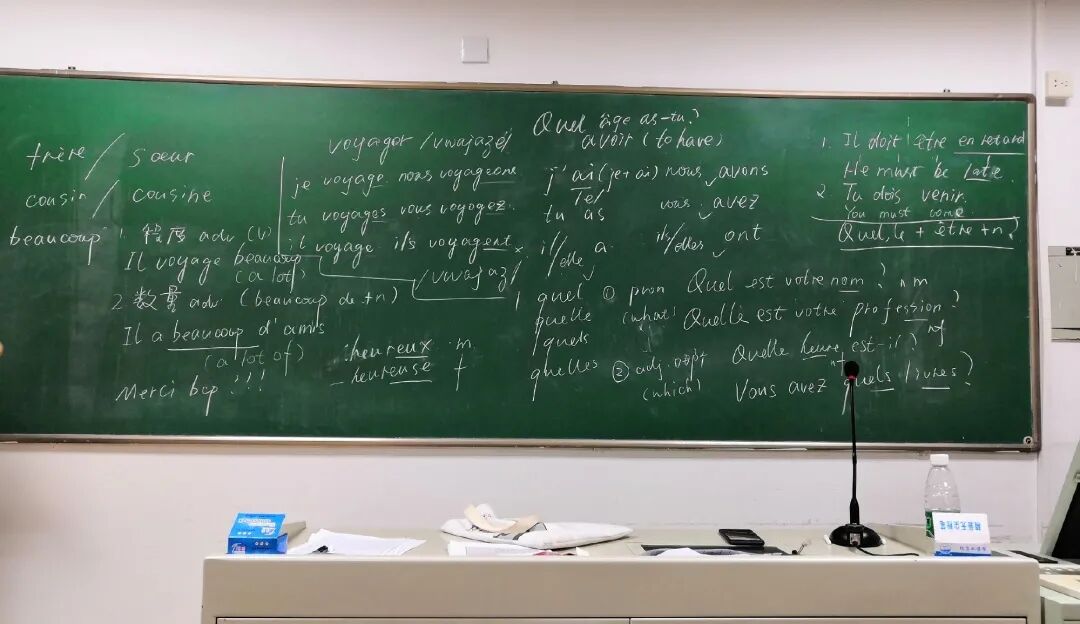 frère / sœur
cousin / cousine
beaucoup 1. 程度 adv (v)
Il voyage beaucoup
(a lot)
2. 数量 adv (beaucoup de +n)
Il a beaucoup d'amis
(a lot of)
Merci bcp !!!
voyager /vwajaʒe/
je voyage nous voyageons
tu voyages vous voyagez
il voyage ils voyagent
/vwajaʒ/
heureux m.
heureuse f
Quel âge as-tu?
avoir (to have)
j'ai (je+ai) nous avons
/e/
tu as vous avez
il/elle a ils/elles ont
quel
quelle
quels
quelles
① pron Quel est votre nom? nm
(what) Quelle est votre profession? nf
② adj. Quelle heure est-il? nf
(which) Vous avez quels livres?
1. Il doit être en retard
He must be late.
2. Tu dois venir.
You must come.
Quel, le + être + n?